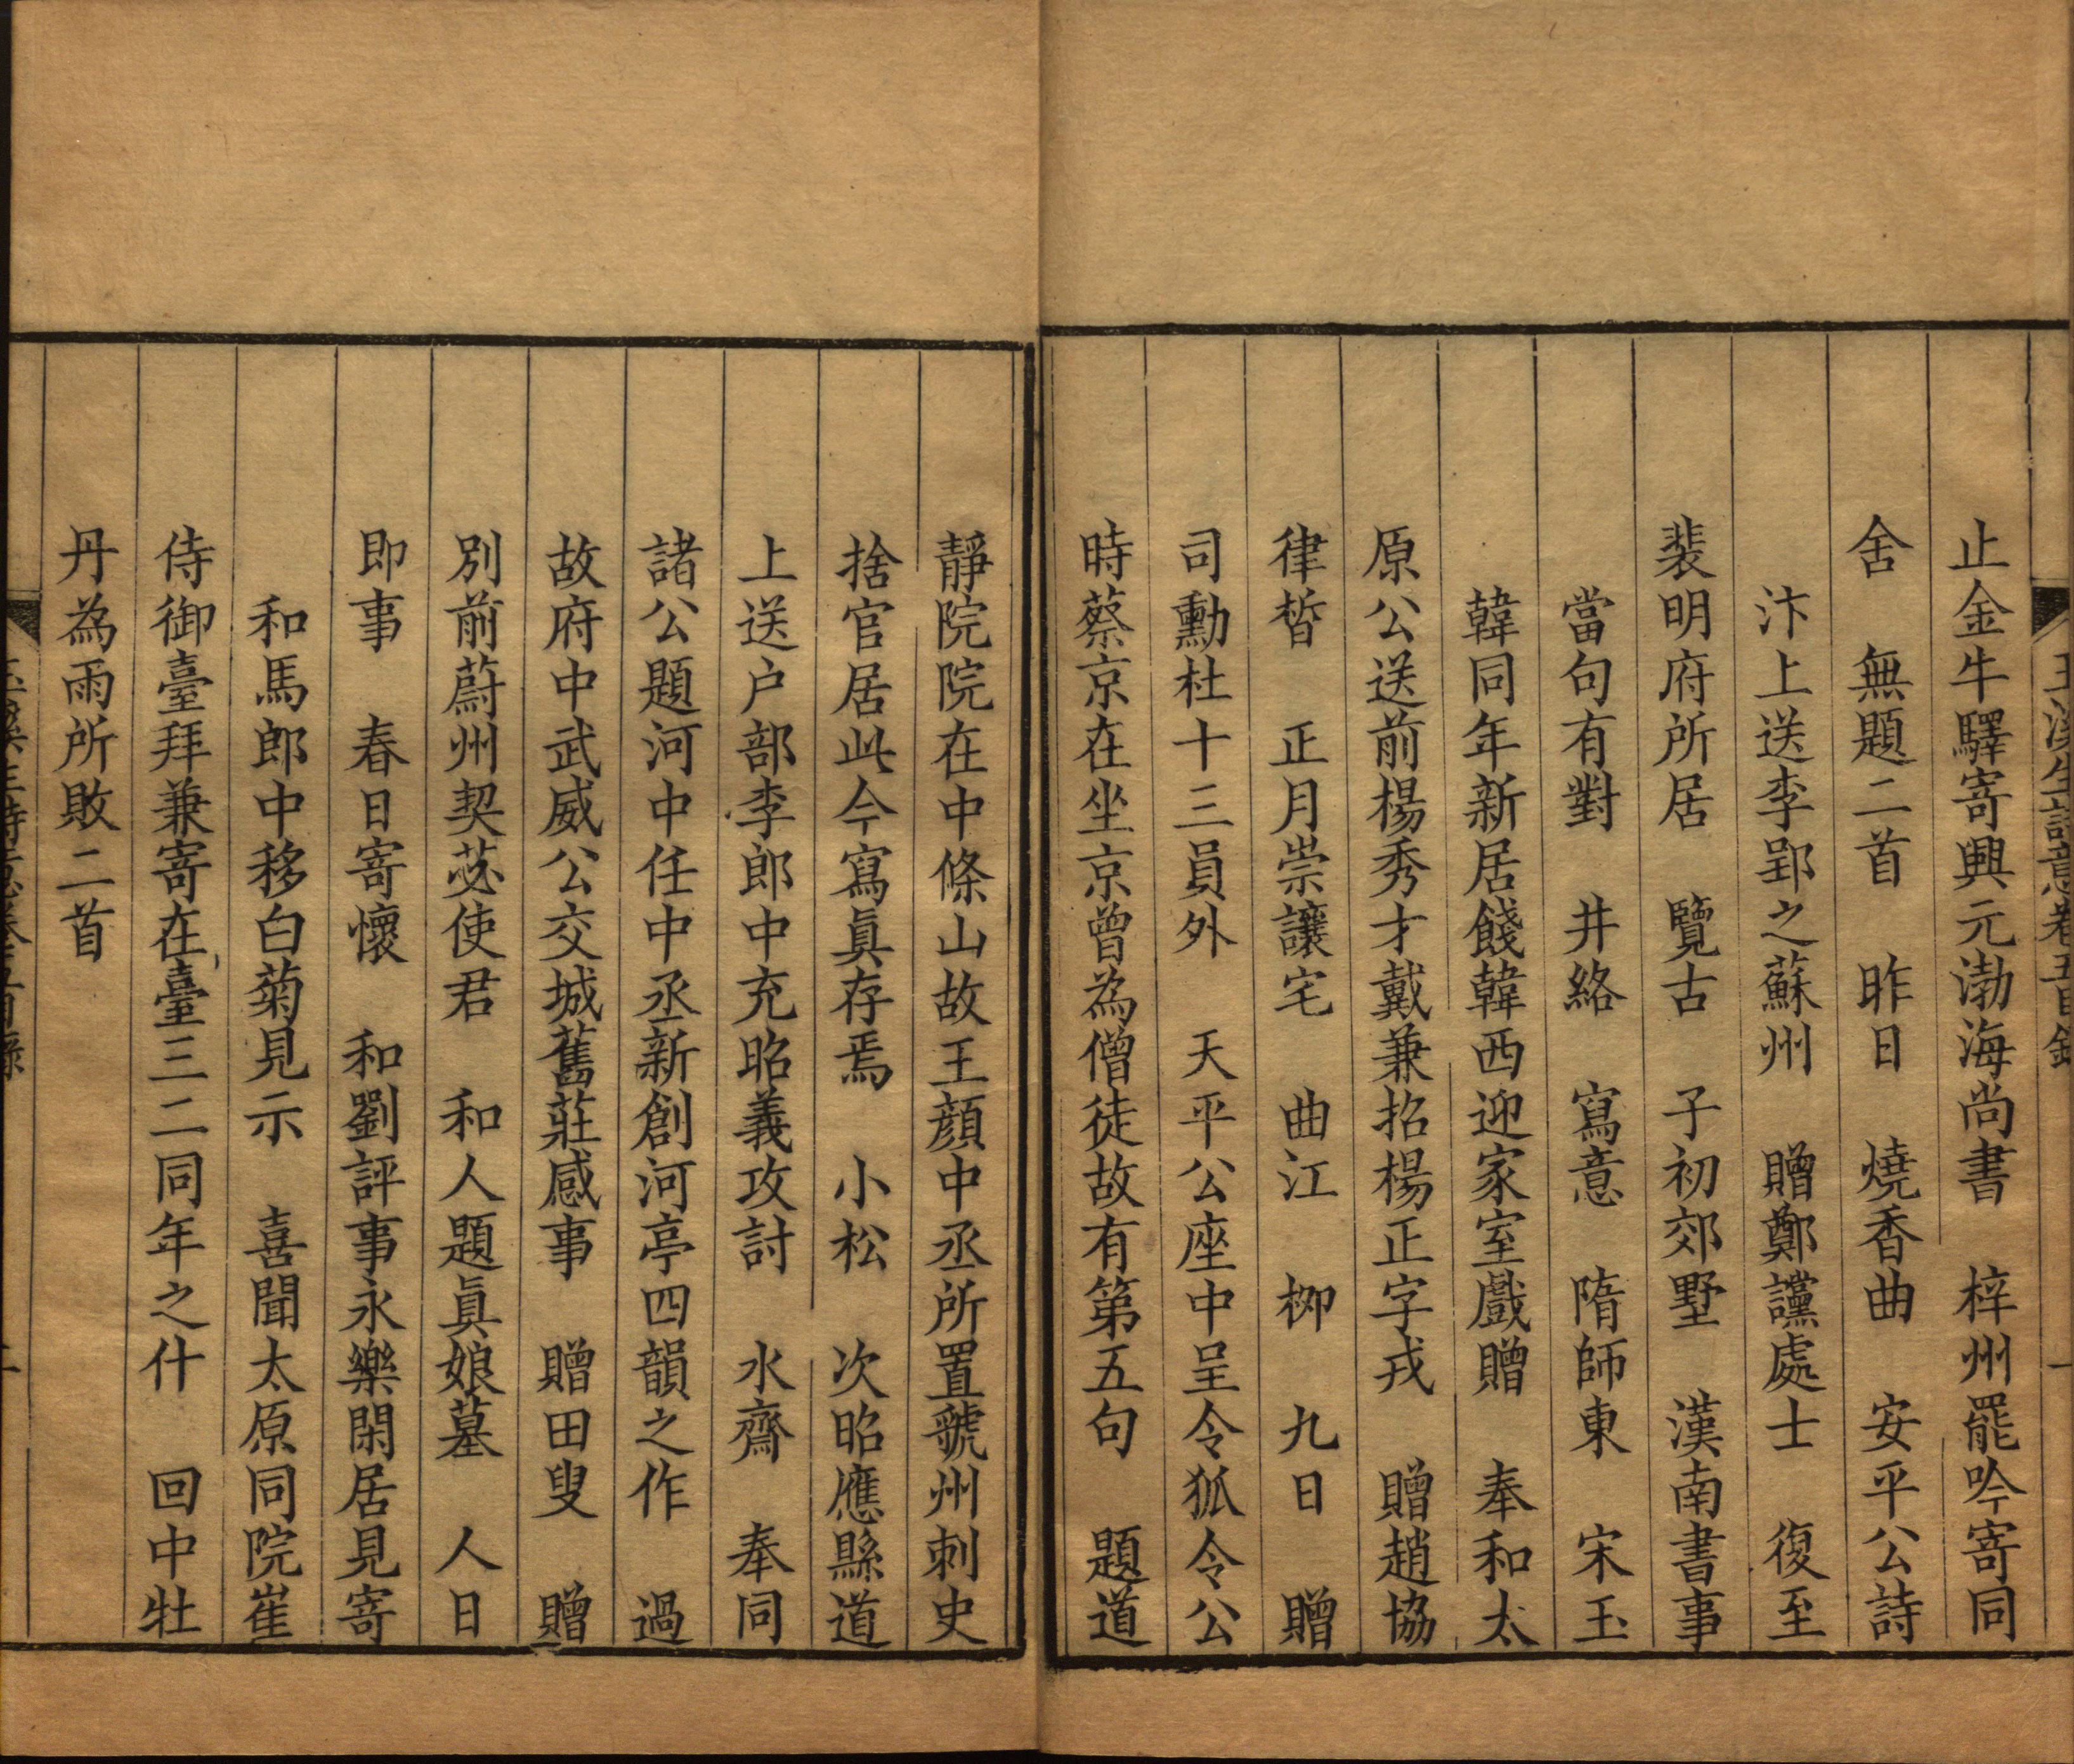 玉溪生詩意卷五目錄 一
止金牛驛寄興元渤海尚書 梓州罷吟寄同
舍 無題二首 昨日 燒香曲 安平公詩
汴上送李郢之蘇州 贈鄭讜處士 復至
裴明府所居 覽古 子初郊墅 漢南書事
當句有對 井絡 寫意 隋師東 宋玉
韓同年新居餞韓西迎家室戲贈 奉和太
原公送前楊秀才戴兼招楊正字戎 贈趙協
律晳 正月崇讓宅 曲江 柳 九日 贈
司勳杜十三員外 天平公座中呈令狐令公
時蔡京在坐京曾為僧徒故有第五句 題道
靜院院在中條山故王顏中丞所置虢州刺史
捨官居此今寫眞存焉 小松 次昭應縣道
上送户部李郎中充昭義攻討 水齋 奉同
諸公題河中任中丞新創河亭四韻之作 過
故府中武威公交城舊莊感事 贈田叟 贈
別前蔚州契苾使君 和人題眞娘墓 人日
即事 春日寄懷 和劉評事永樂閑居見寄
和馬郎中移白菊見示 喜聞太原同院崔
侍御臺拜兼寄在臺三二同年之什 回中牡
丹為雨所敗二首